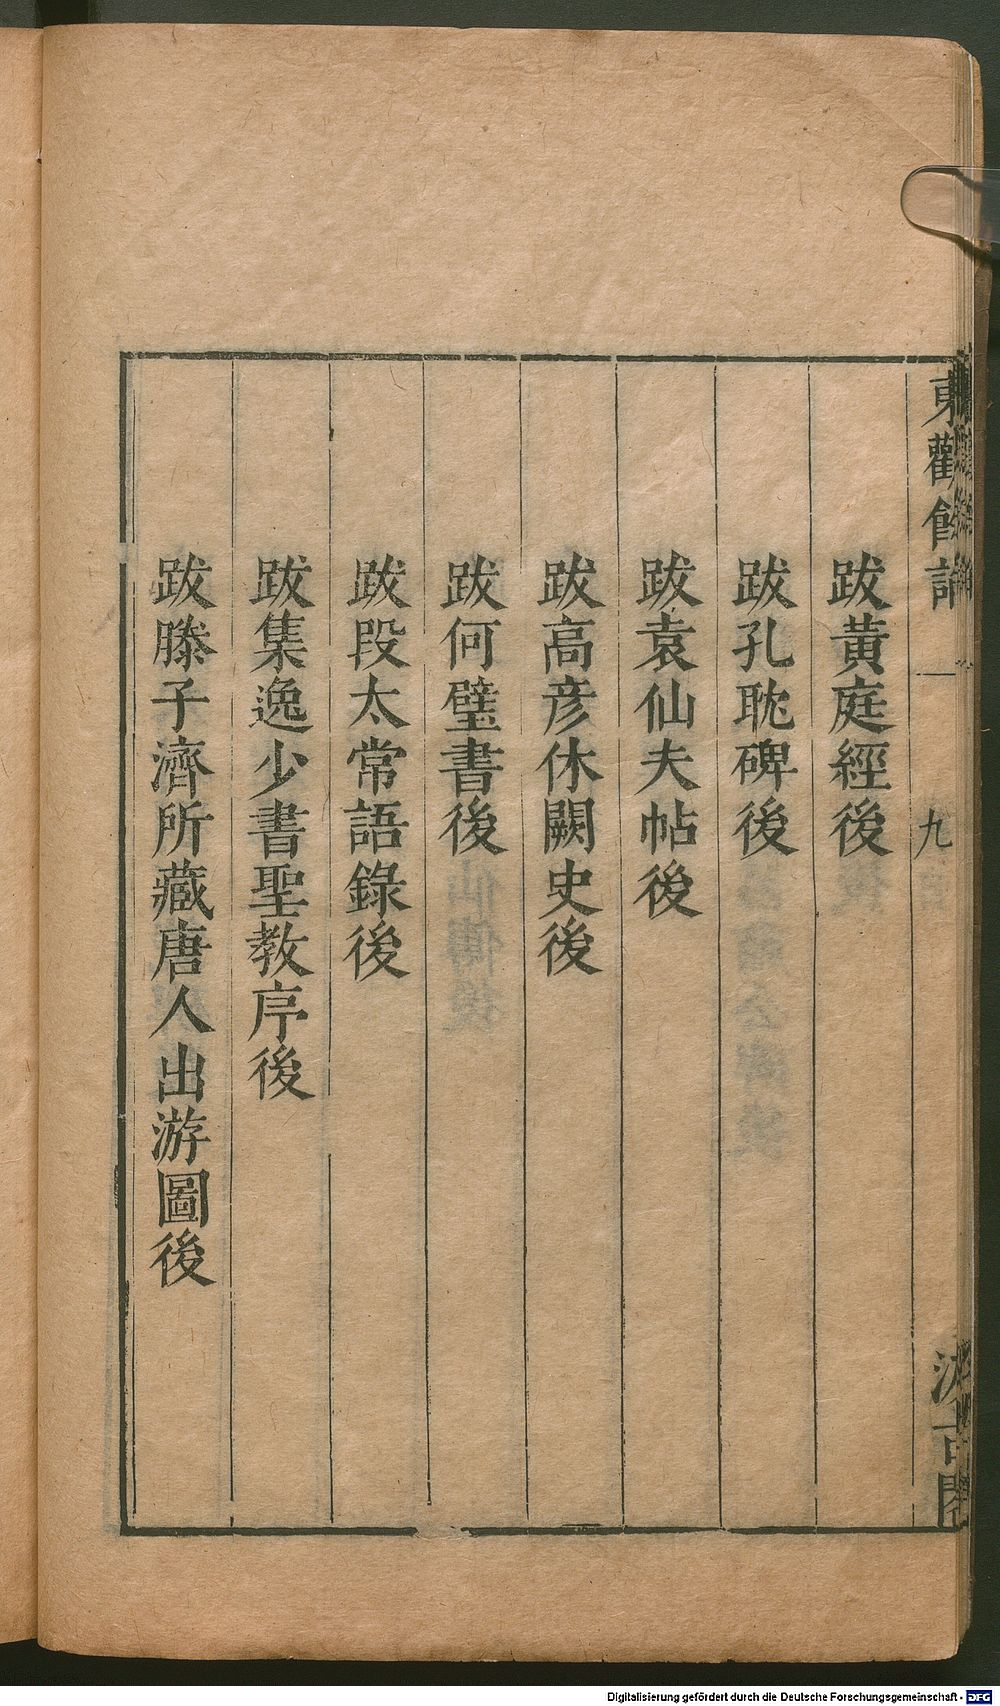 東觀餘論
一
九
汲古閣
跋黄庭經後
跋孔耽碑後
跋袁仙夫帖後
跋高彦休闕史後
跋何璧書後
跋段太常語錄後
跋集逸少書聖教序後
跋滕子濟所藏唐人出游圖後
Digitalisierung gefördert durch die Deutsche Forschungsgemeinschaft - DFG